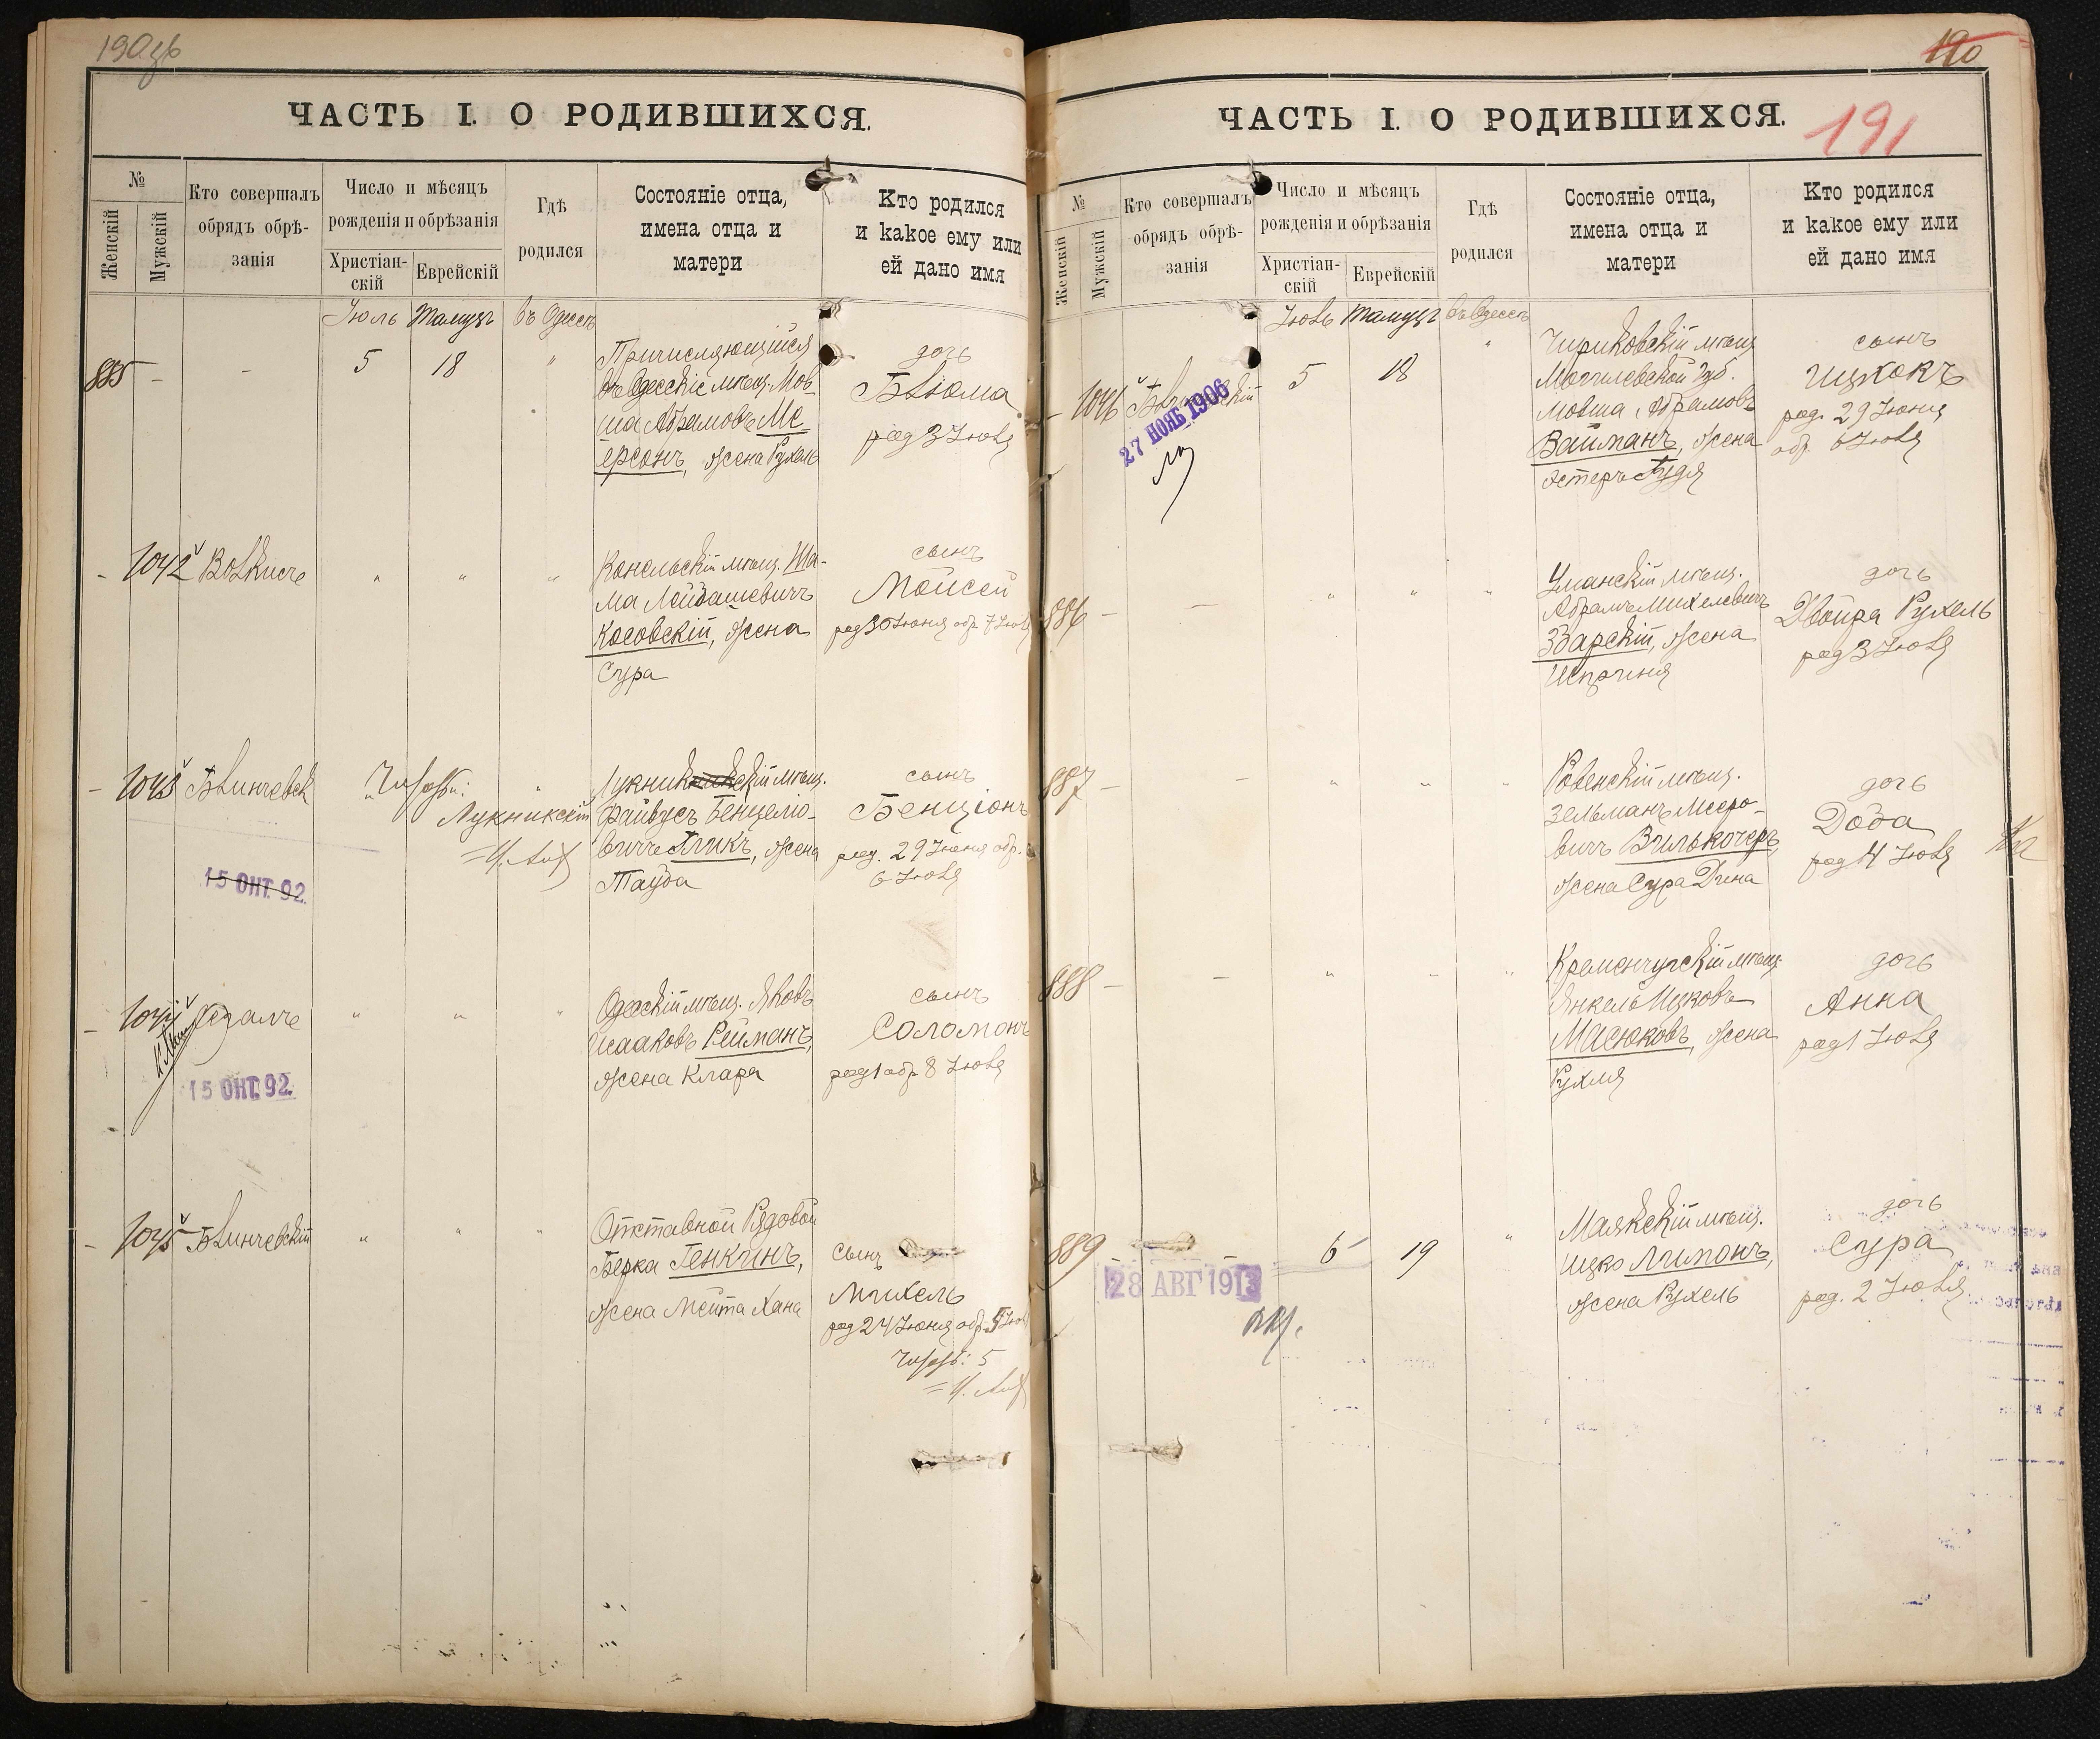 190об
ЧАСТЬ I. О РОДИВШИХСЯ.
№
Женскій
Мужскій
Кто совершалъ
обрядъ обрѣ-
занія
Число и мѣсяцъ
рожденія и обрѣзанія
Христіан-
скій
Еврейскій
Гдѣ
родился
Состояніе отца,
имена отца и
матери
Кто родился
и какое ему или
ей дано имя
Іюль Тамузъ въ Одессѣ
885 - - 5 18 "
Причисляющійся
въ Одесскіе мѣщ. Мов-
ша Абрамовъ Ме-
ерсонъ, жена Рухель
дочь
Блюма
род 3 Іюля
- 1042 Волкисъ " " "
Конельскій мѣщ. Ша-
ма Лейбашевичъ
Косовскій, жена
Сура
сынъ
Мойсей
род 30 Іюня обр. 7 Іюля
- 1043 Блинчевск "
Лукникскій
Лукникскій мѣщ.
Файвусъ Бенцело-
вичъ Гликъ, жена
Тауба
сынъ
Бенціонъ
род. 29 Іюня обр.
6 Іюля
15 ОКТ. 92.
- 1044 " " "
Одесскій мѣщ. Яковъ
Исааковъ Рейманъ,
жена Клара
сынъ
Соломонъ
род 1 обр 8 Іюля
15 ОКТ. 92.
- 1045 Блинчевскій " " "
Отставной Рядовой
Берка Генкинъ,
жена Мейта Хана
сынъ
Михель
род 24 Іюня обр. 5 Іюля
5
190
191
ЧАСТЬ I. О РОДИВШИХСЯ.
№
Женскій
Мужскій
Кто совершалъ
обрядъ обрѣ-
занія
Число и мѣсяцъ
рожденія и обрѣзанія
Христіан-
скій
Еврейскій
Гдѣ
родился
Состояніе отца,
имена отца и
матери
Кто родился
и какое ему или
ей дано имя
Іюль Тамузъ въ Одессѣ
- 1046 Блинчевскій 5 18 "
27 НОЯБ 1906
Чериковскій мѣщ
Могилевской Губ.
Мовша Абрамовъ
Вайманъ, жена
Эстеръ Гудя
сынъ
Ицхокъ
род. 29 Іюня
обр. 6 Іюля
886 - - " " "
Уманскій мѣщ.
Абрамъ Михелевичъ
Збарскій, жена
Шпринця
дочь
Двойра Рухель
род 3 Іюля
887 - - " " "
Ровенскій мѣщ.
Зельманъ Мееро-
вичъ Вилькочеръ,
жена Сура Дина
дочь
Доба
род 4 Іюля
888 - - " " "
Кременчугскій мѣщ.
Янкель Ицковъ
Масюковъ, жена
Рухля
дочь
Анна
род 1 Іюля
889 - - 6 19 "
28 АВГ 1913
Маякскій мѣщ.
Ицко Лимонъ,
жена Рухель
дочь
Сура
род. 2 Іюля